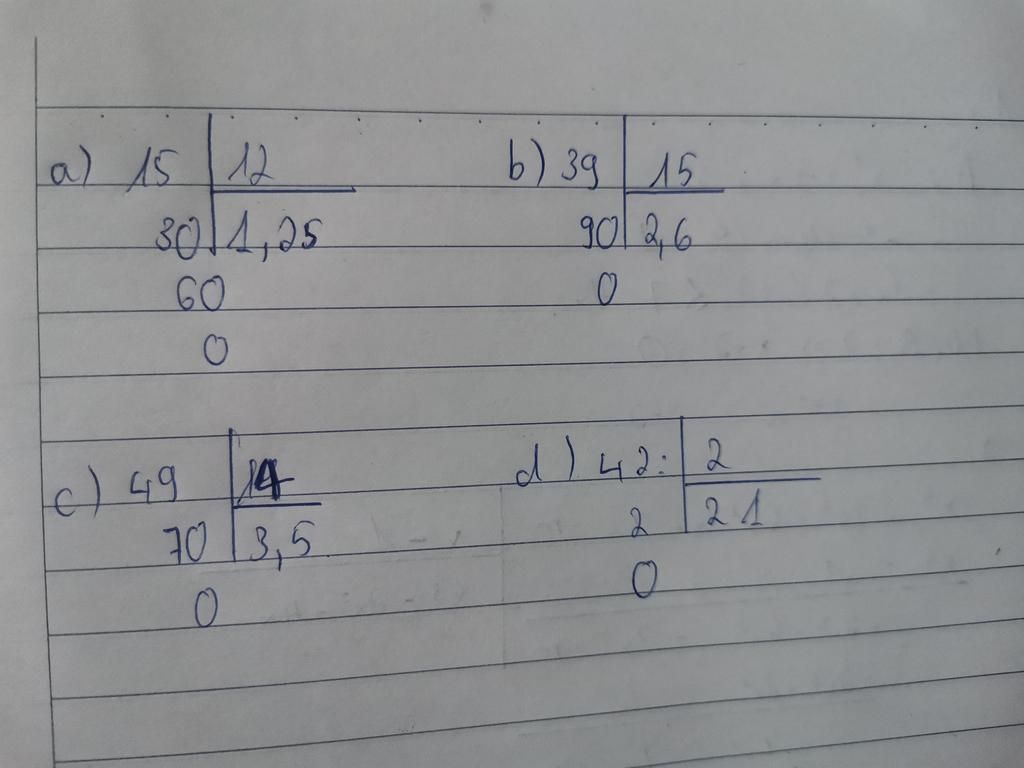 a) 15 12
30 1,25
60
0
b) 39 15
90 2,6
0
c) 49 14
70 3,5
0
d) 42: 2
2 21
0